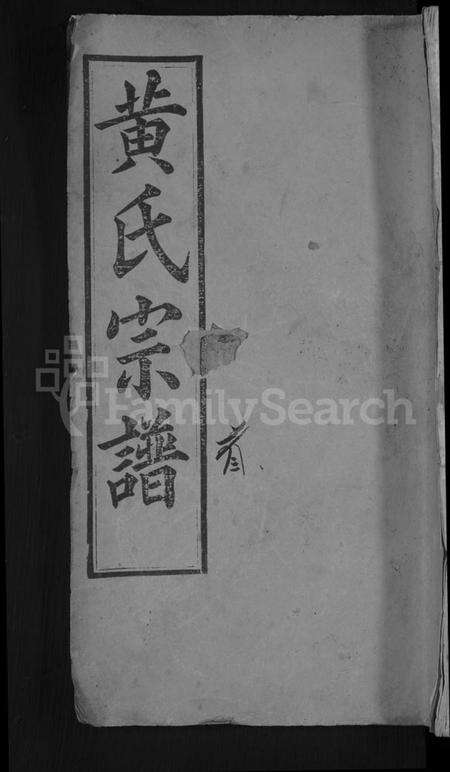 黃氏宗譜
首
FamilySearch